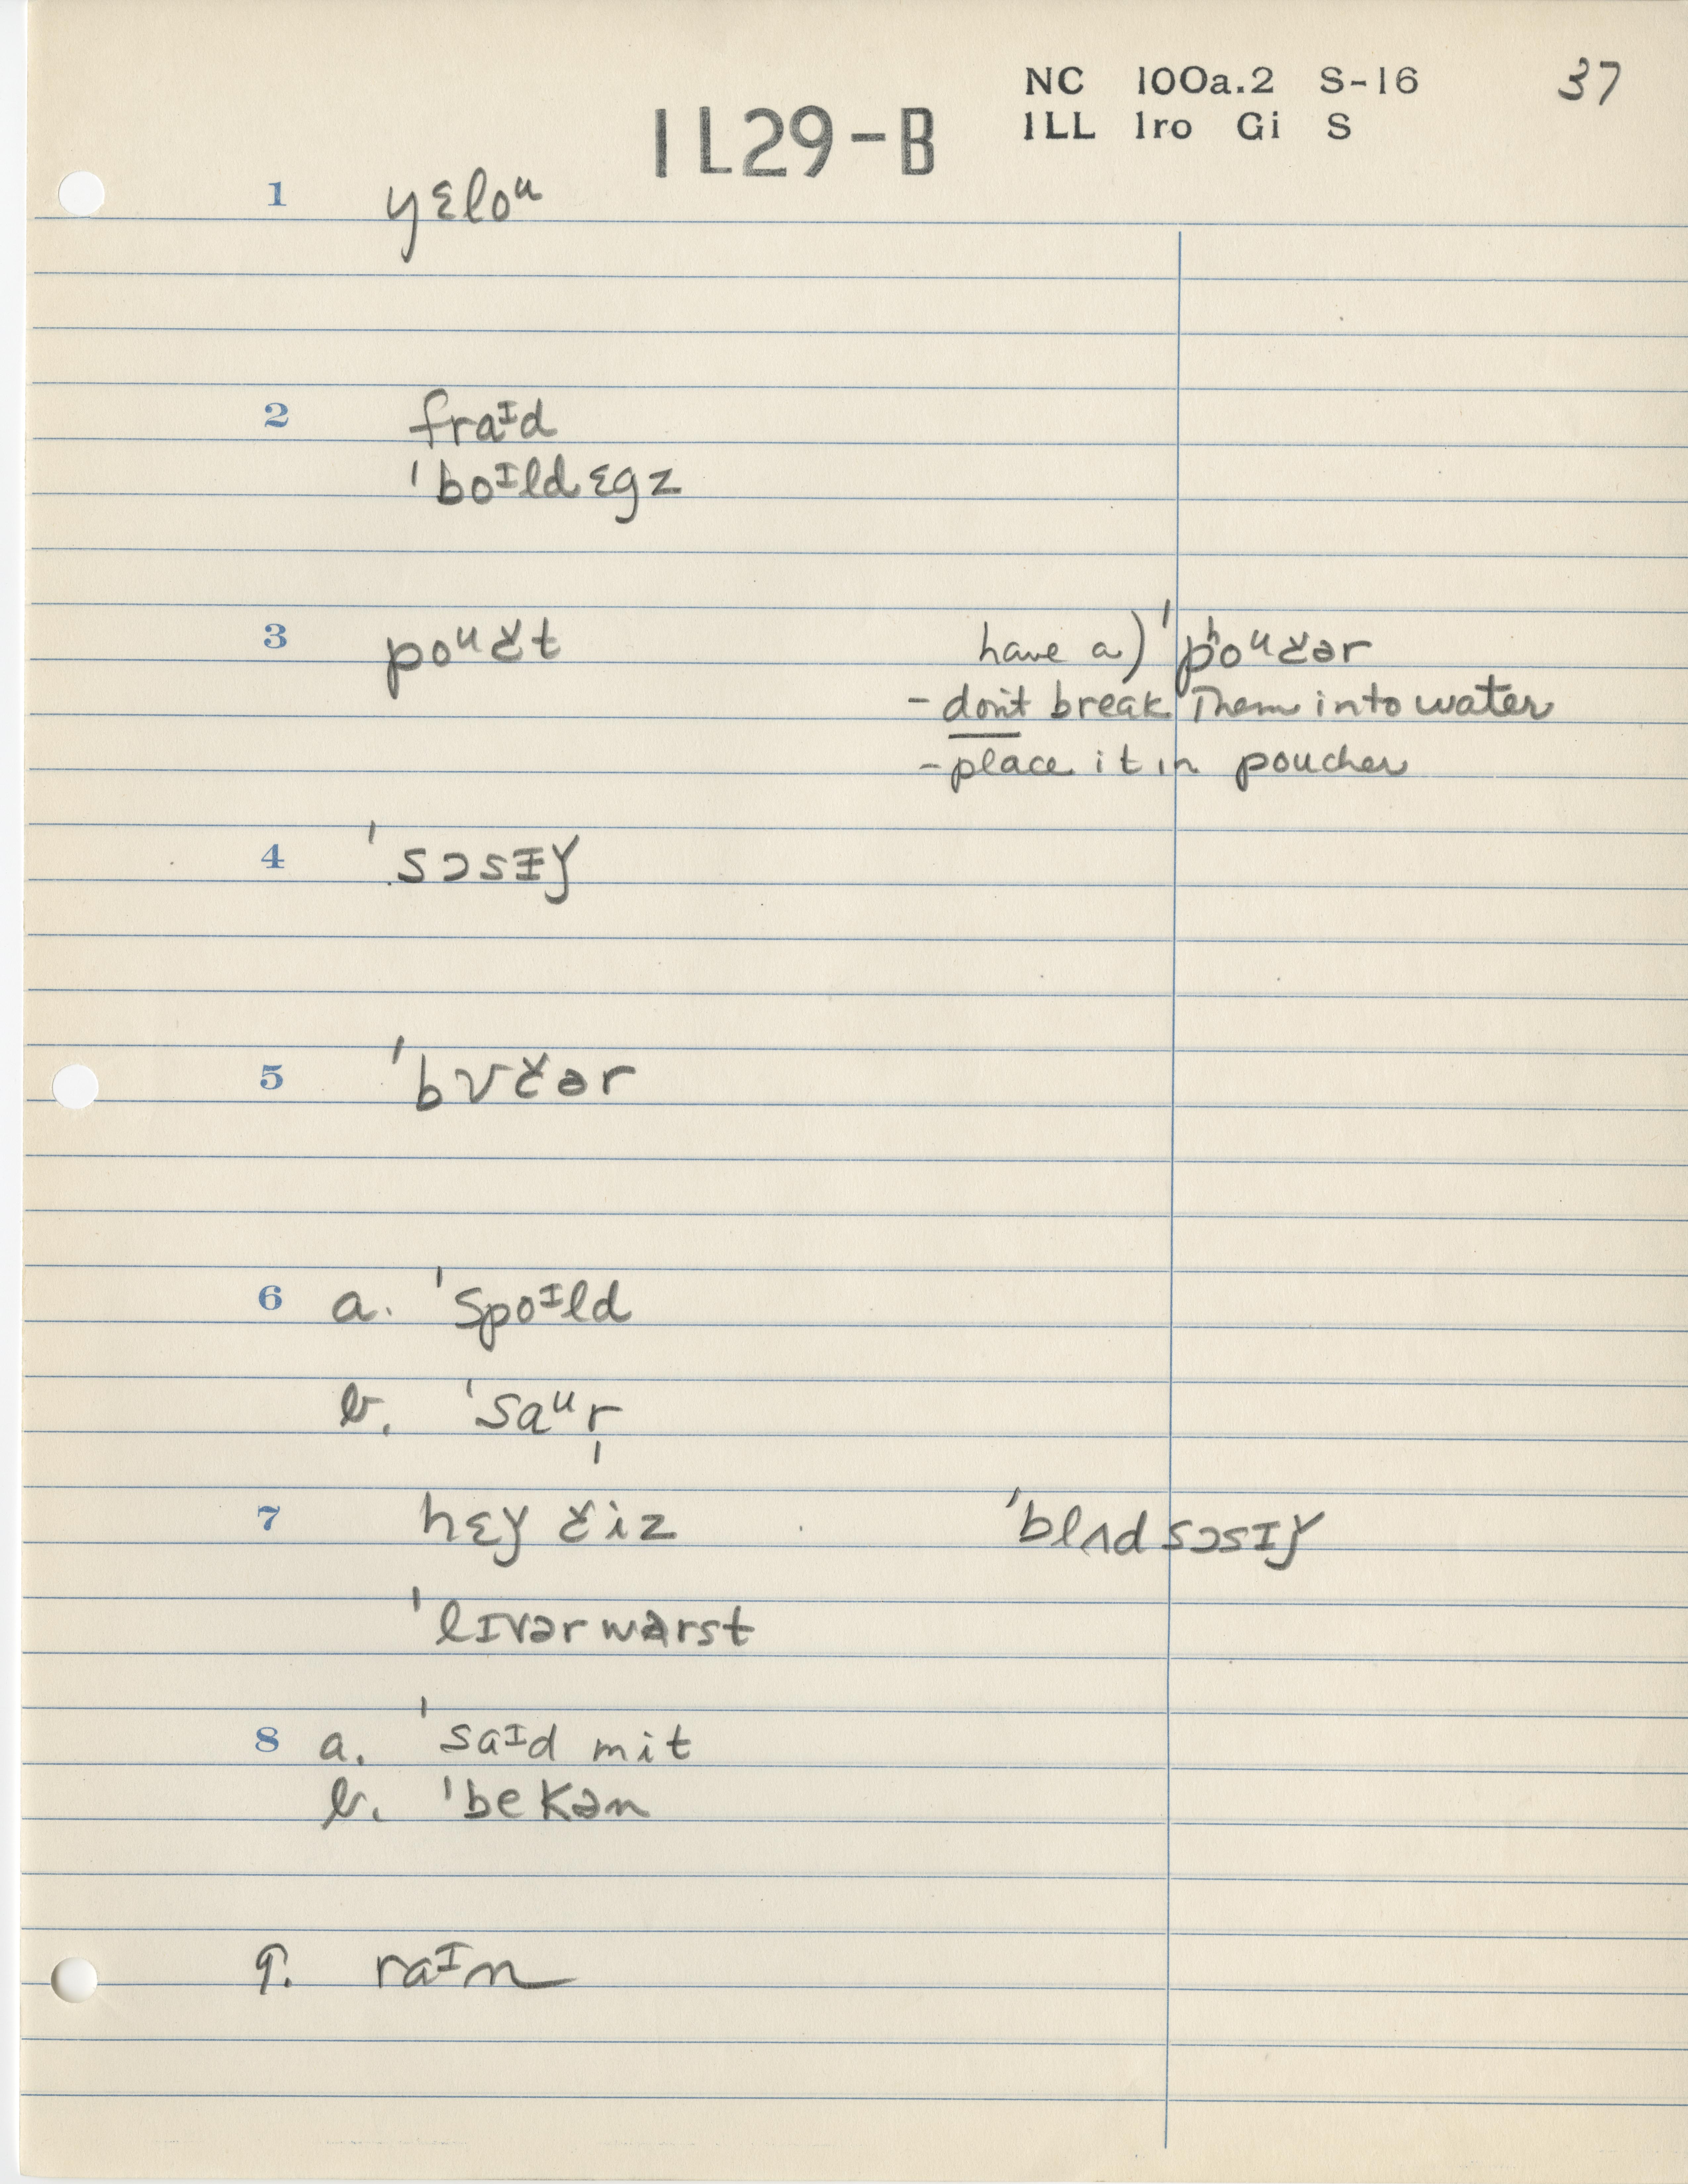 NC 100a.2 S-16 37
ILL Iro Gi S
IL29-B
1 yɛloᵘ
2 fraᶦd
ˈboᶦld ɛgz
3 poᵘčt have a) ˈpʰoᵘčər
- don't break them into water
- place it in poucher
4 ˈsɔsɨǰ
5 ˈbʊčər
6 a. ˈspoᶦld
b. ˈsaᵘr̩
7 hɛǰ čiz ˈblʌd sɔsɪǰ
ˈlɪvər wərst
8 a. ˈsaᶦd mit
b. ˈbekən
9. raᶦn